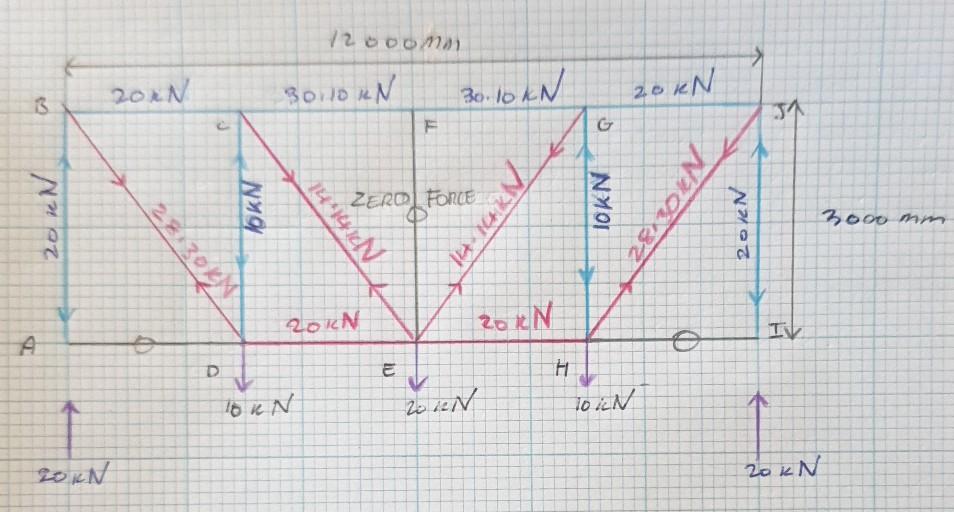 12000mm
20kN 30.10kN 30.10kN 20kN
B C F G J
20kN 28.30kN 10kN 14.14kN ZERO FORCE 14.14kN 10kN 28.30kN 20kN 3000mm
20kN 20kN
A D E H I
10kN 20kN 10kN
20kN 20kN